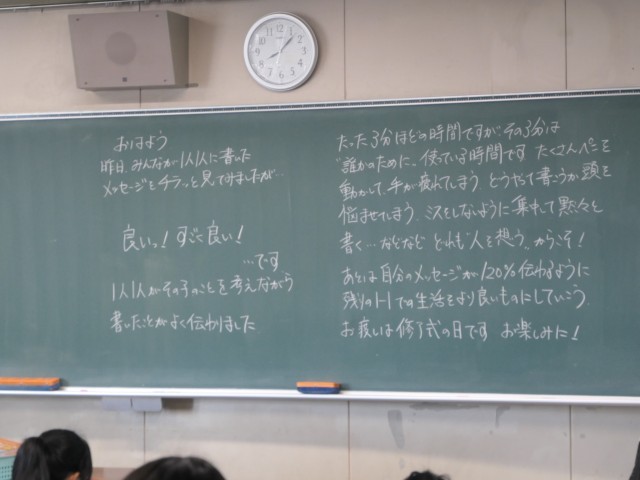 おはよう
昨日、みんなが1人1人に書いた
メッセージをチラッと見てみましたが…
良いっ！すごく良い！
…です
1人1人がその子のことを考えながら
書いたことがよく伝わりました
たった3分ほどの時間ですが、その3分は
"誰かのために"使っている時間です たくさんペンを
動かして、手が疲れてしまう どうやって書こうか頭を
悩ませてしまう ミスをしないように集中して黙々と
書く…などなど どれも"人を想う"からこそ！
あとは自分のメッセージが120%伝わるように
残りの1-1での生活をより良いものにしていこう
お披いは修了式の日です お楽しみに！
12
1
2
3
4
5
6
7
8
9
10
11